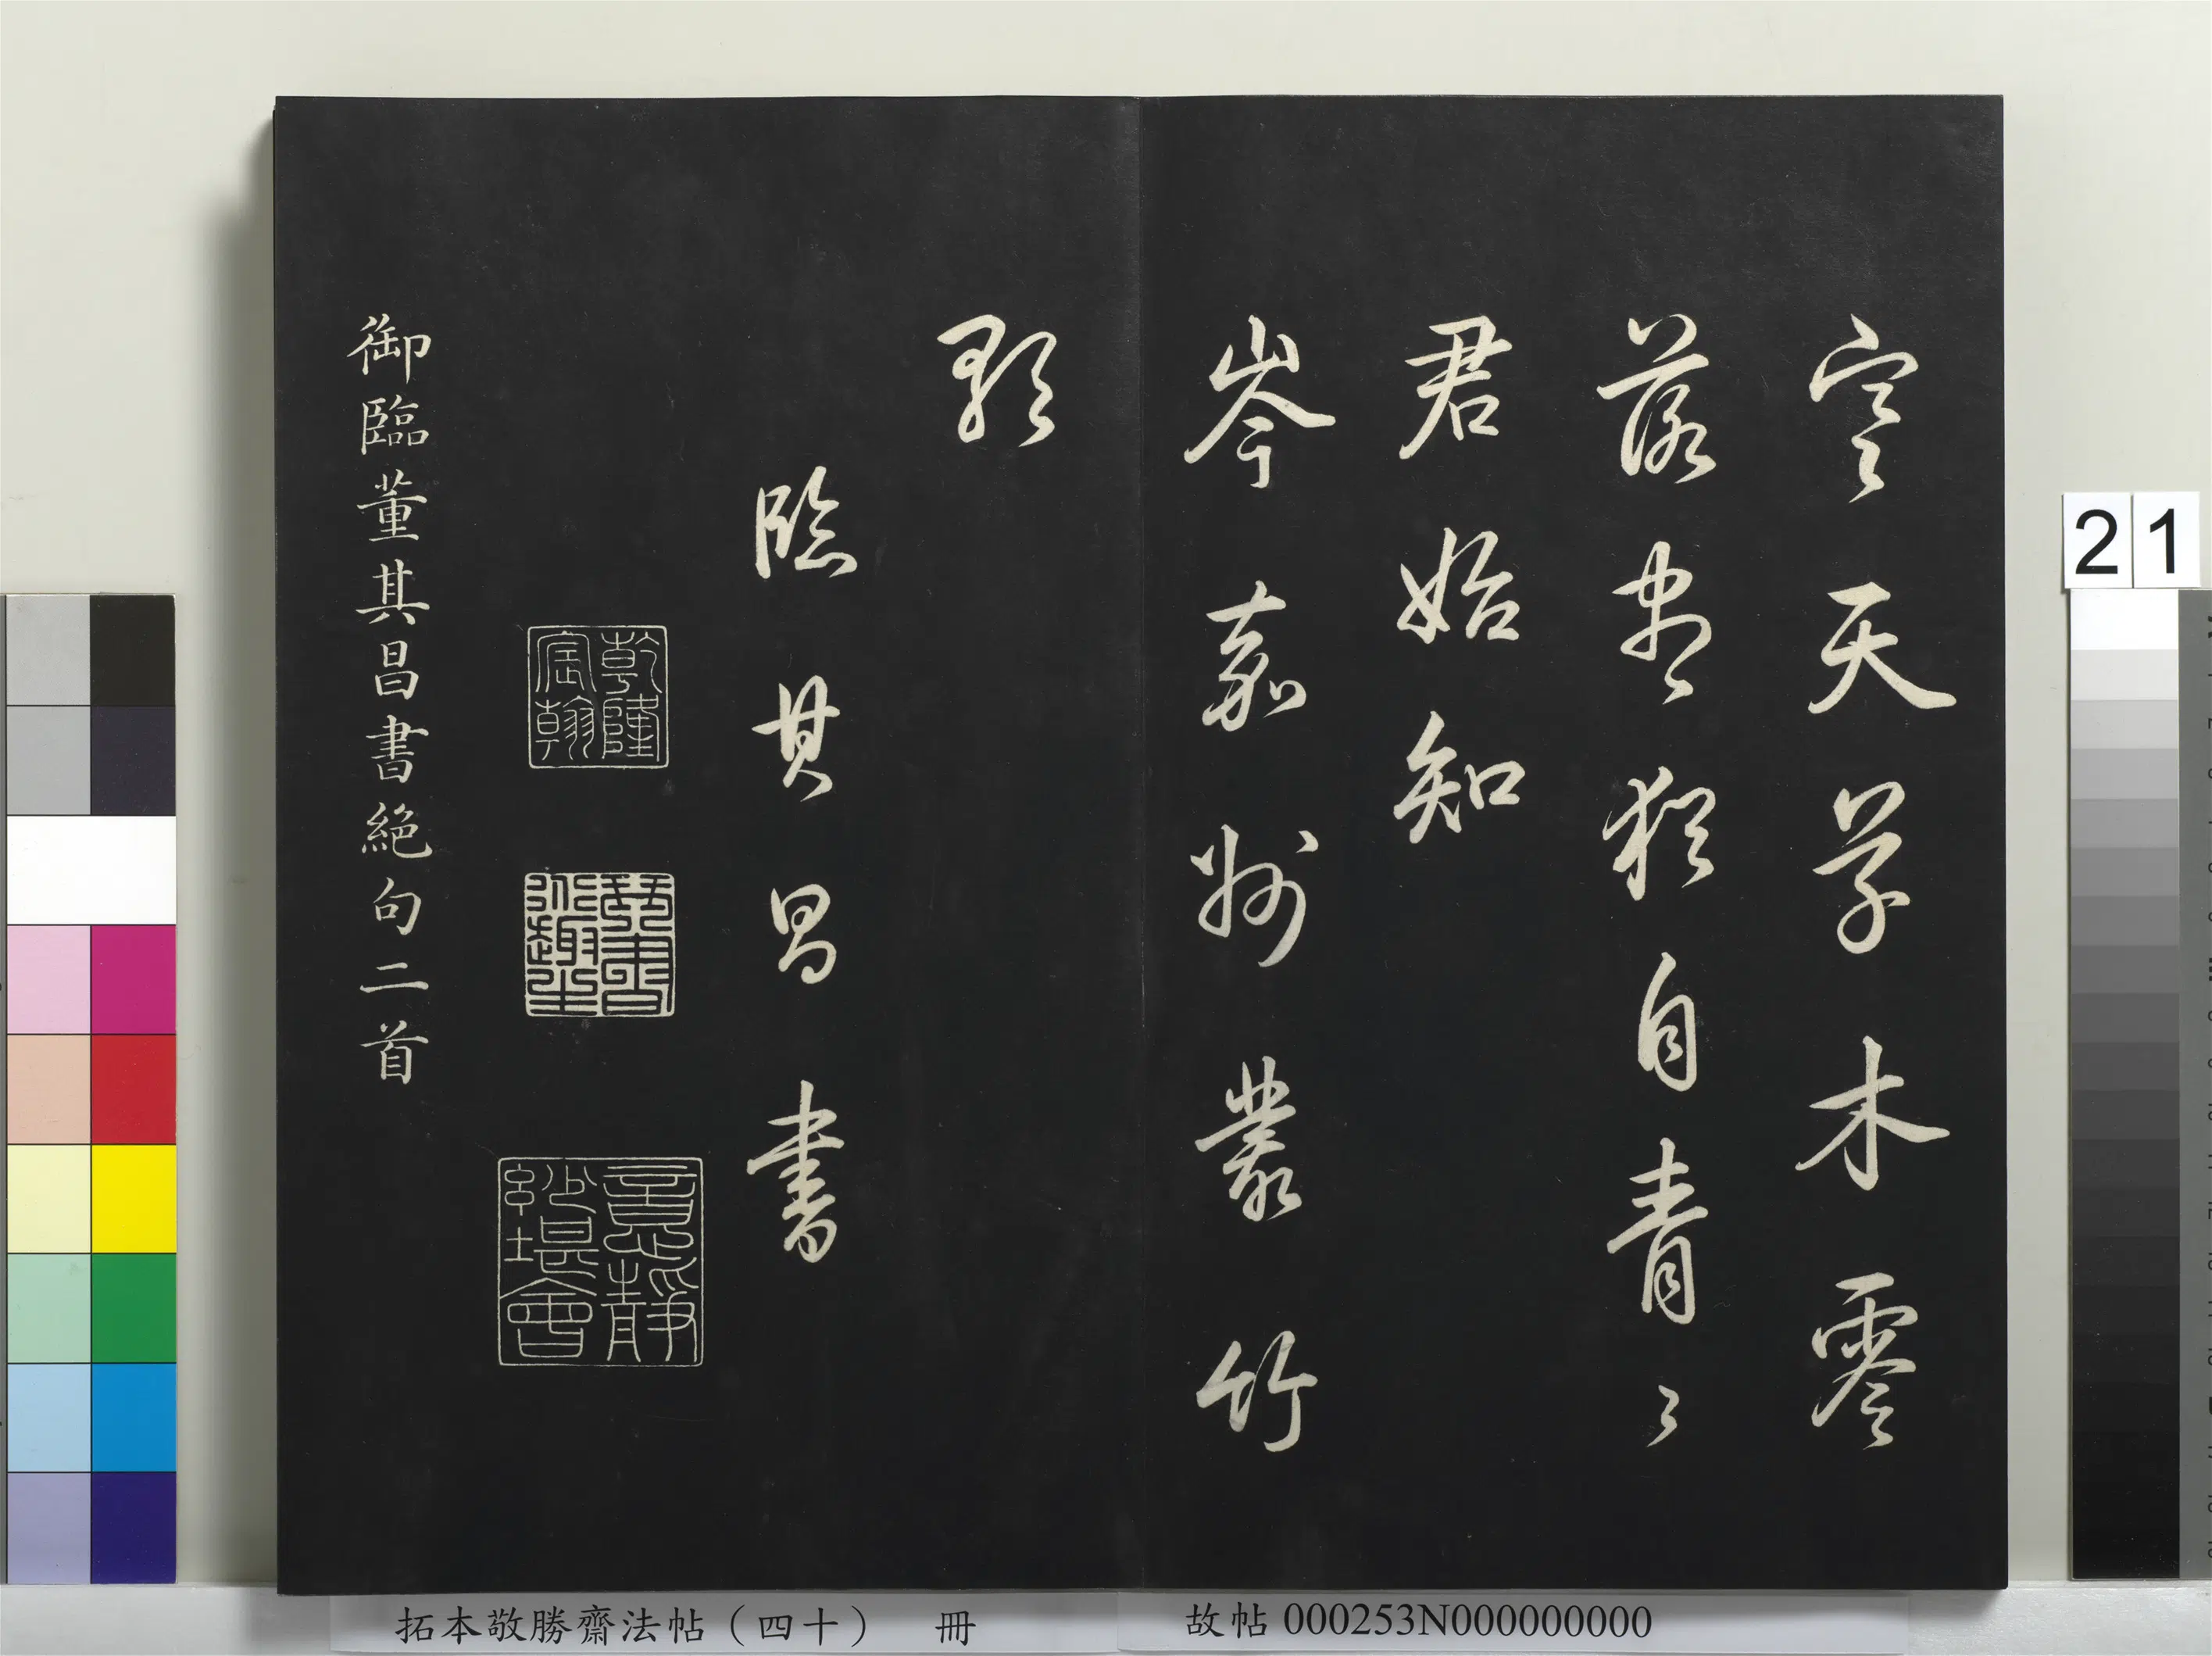 寒天草木零
落盡猶自青〻
君始知
岑嘉州叢竹
歌
臨其昌書
乾隆
宸翰
意靜
妙堪會
御臨董其昌書絕句二首
21
拓本敬勝齋法帖（四十） 冊
故帖 000253N000000000